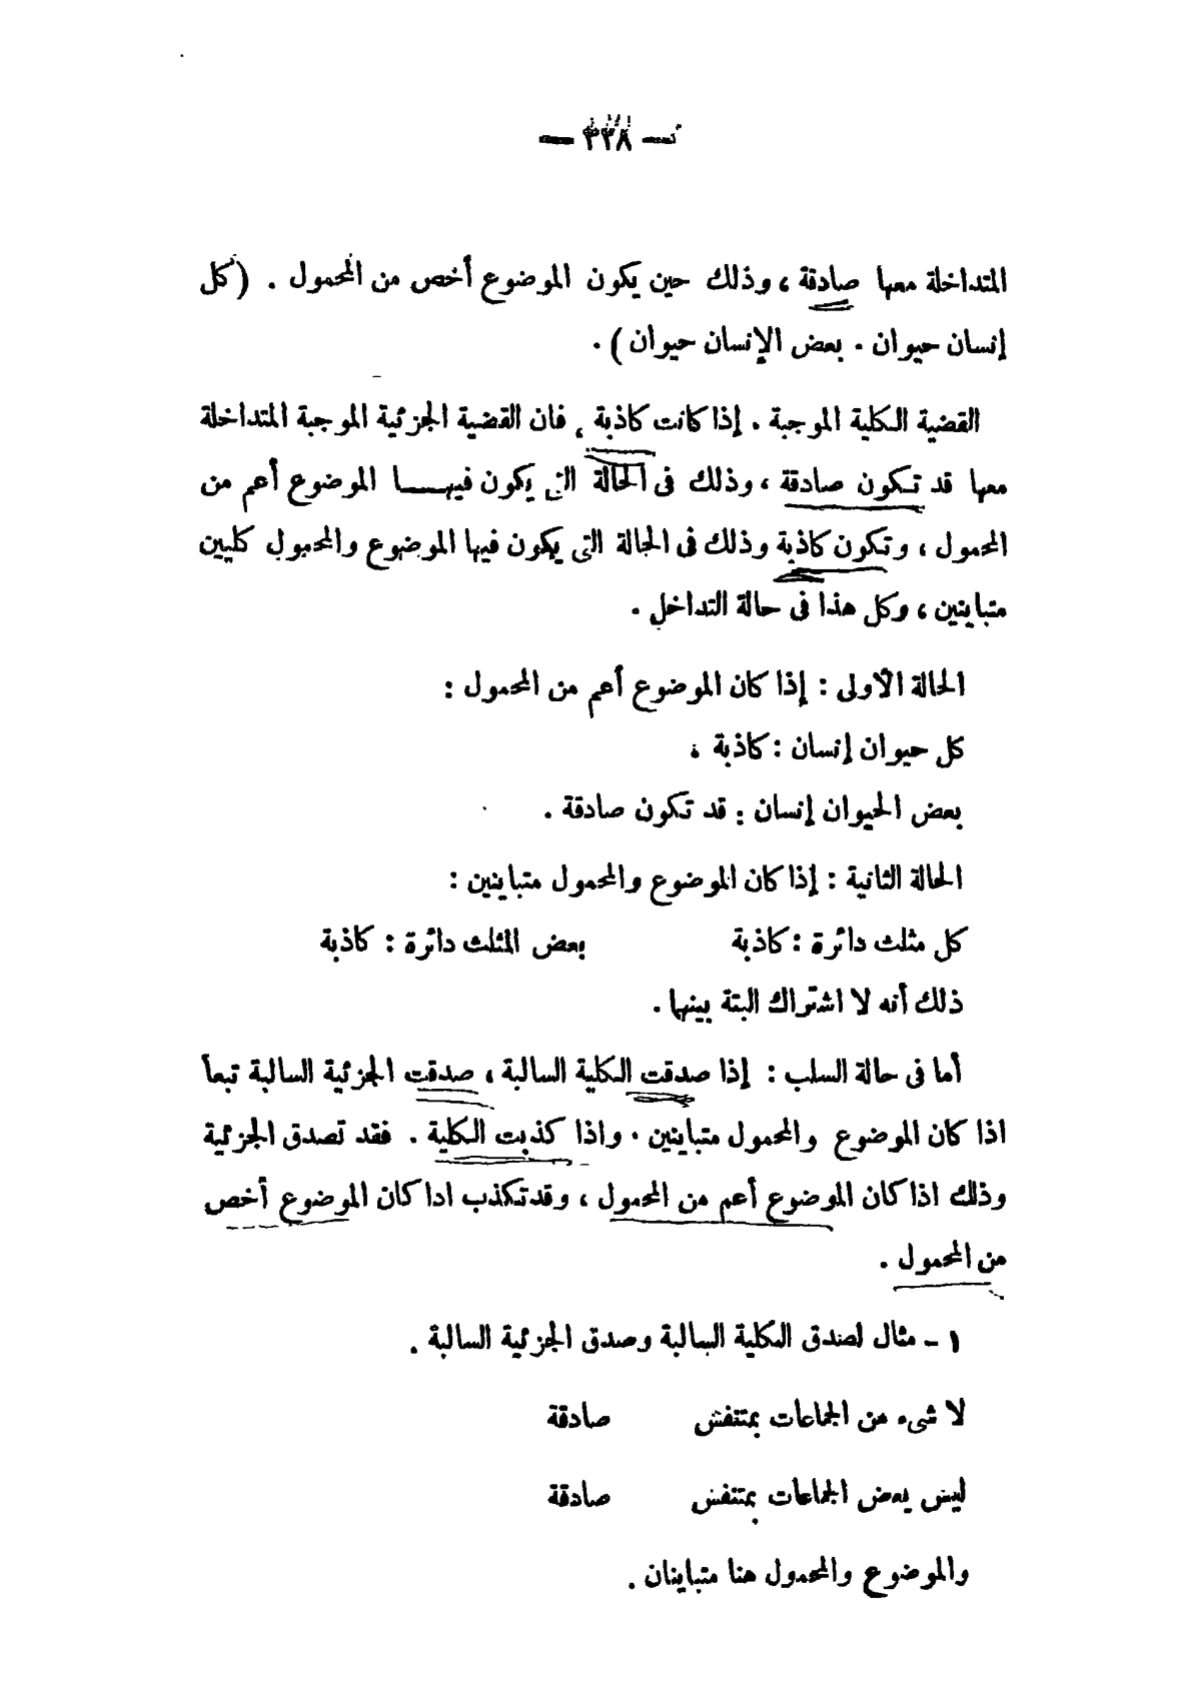 — ٣٣٨ —
المتداخلة معها صادقة ، وذلك حين يكون الموضوع أخص من المحمول . (كل
إنسان حيوان . بعض الإنسان حيوان ) .
القضية الكلية الموجبة . إذا كانت كاذبة ، فان القضية الجزئية الموجبة المتداخلة
معها قد تكون صادقة ، وذلك فى الحالة التى يكون فيهـــا الموضوع أعم من
المحمول ، وتكون كاذبة وذلك فى الحالة التى يكون فيها الموضوع والمحمول كليين
متباينين ، وكل هذا فى حالة التداخل .
الحالة الأولى : إذا كان الموضوع أعم من المحمول :
كل حيوان إنسان : كاذبة ،
بعض الحيوان إنسان : قد تكون صادقة .
الحالة الثانية : إذا كان الموضوع والمحمول متباينين :
كل مثلث دائرة : كاذبة بعض المثلث دائرة : كاذبة
ذلك أنه لا اشتراك البتة بينها .
أما فى حالة السلب : إذا صدقت الكلية السالبة ، صدقت الجزئية السالبة تبعاً
اذا كان الموضوع والمحمول متباينين . واذا كذبت الكلية . فقد تصدق الجزئية
وذلك اذا كان الموضوع أعم من المحمول ، وقد تكذب اذا كان الموضوع أخص
من المحمول .
١ - مثال لصدق الكلية السالبة وصدق الجزئية السالبة .
لا شىء من الجماعات بمتنفس صادقة
ليس بعض الجماعات بمتنفس صادقة
والموضوع والمحمول هنا متباينان .